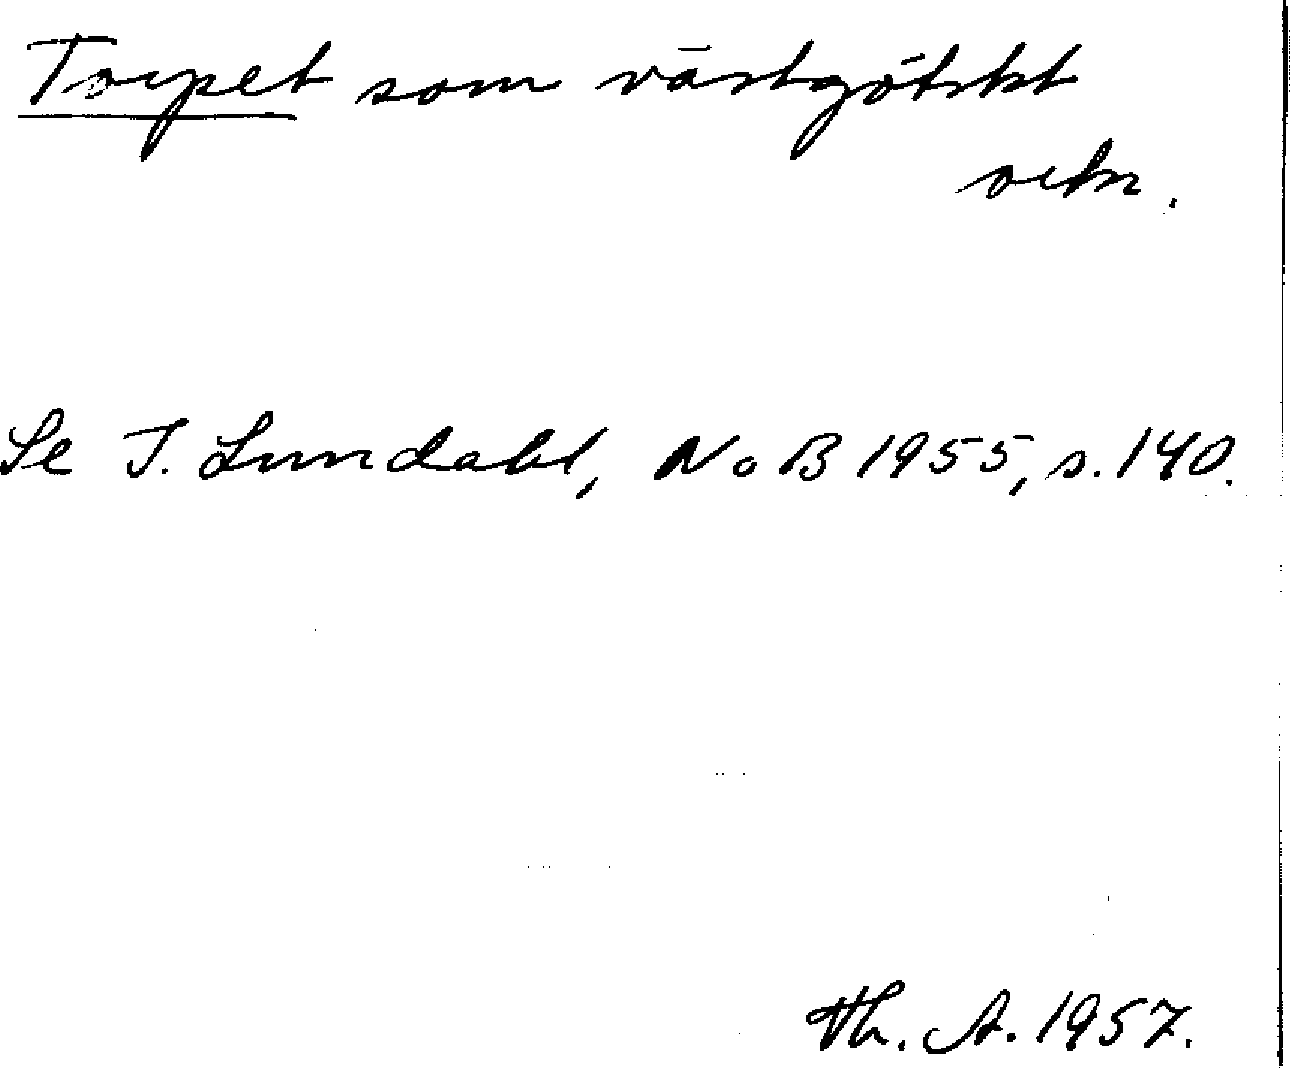 Torpet som västgötskt
ortn.
Se I. Lundahl, NoB 1955, s. 140.
Th. A. 1957.